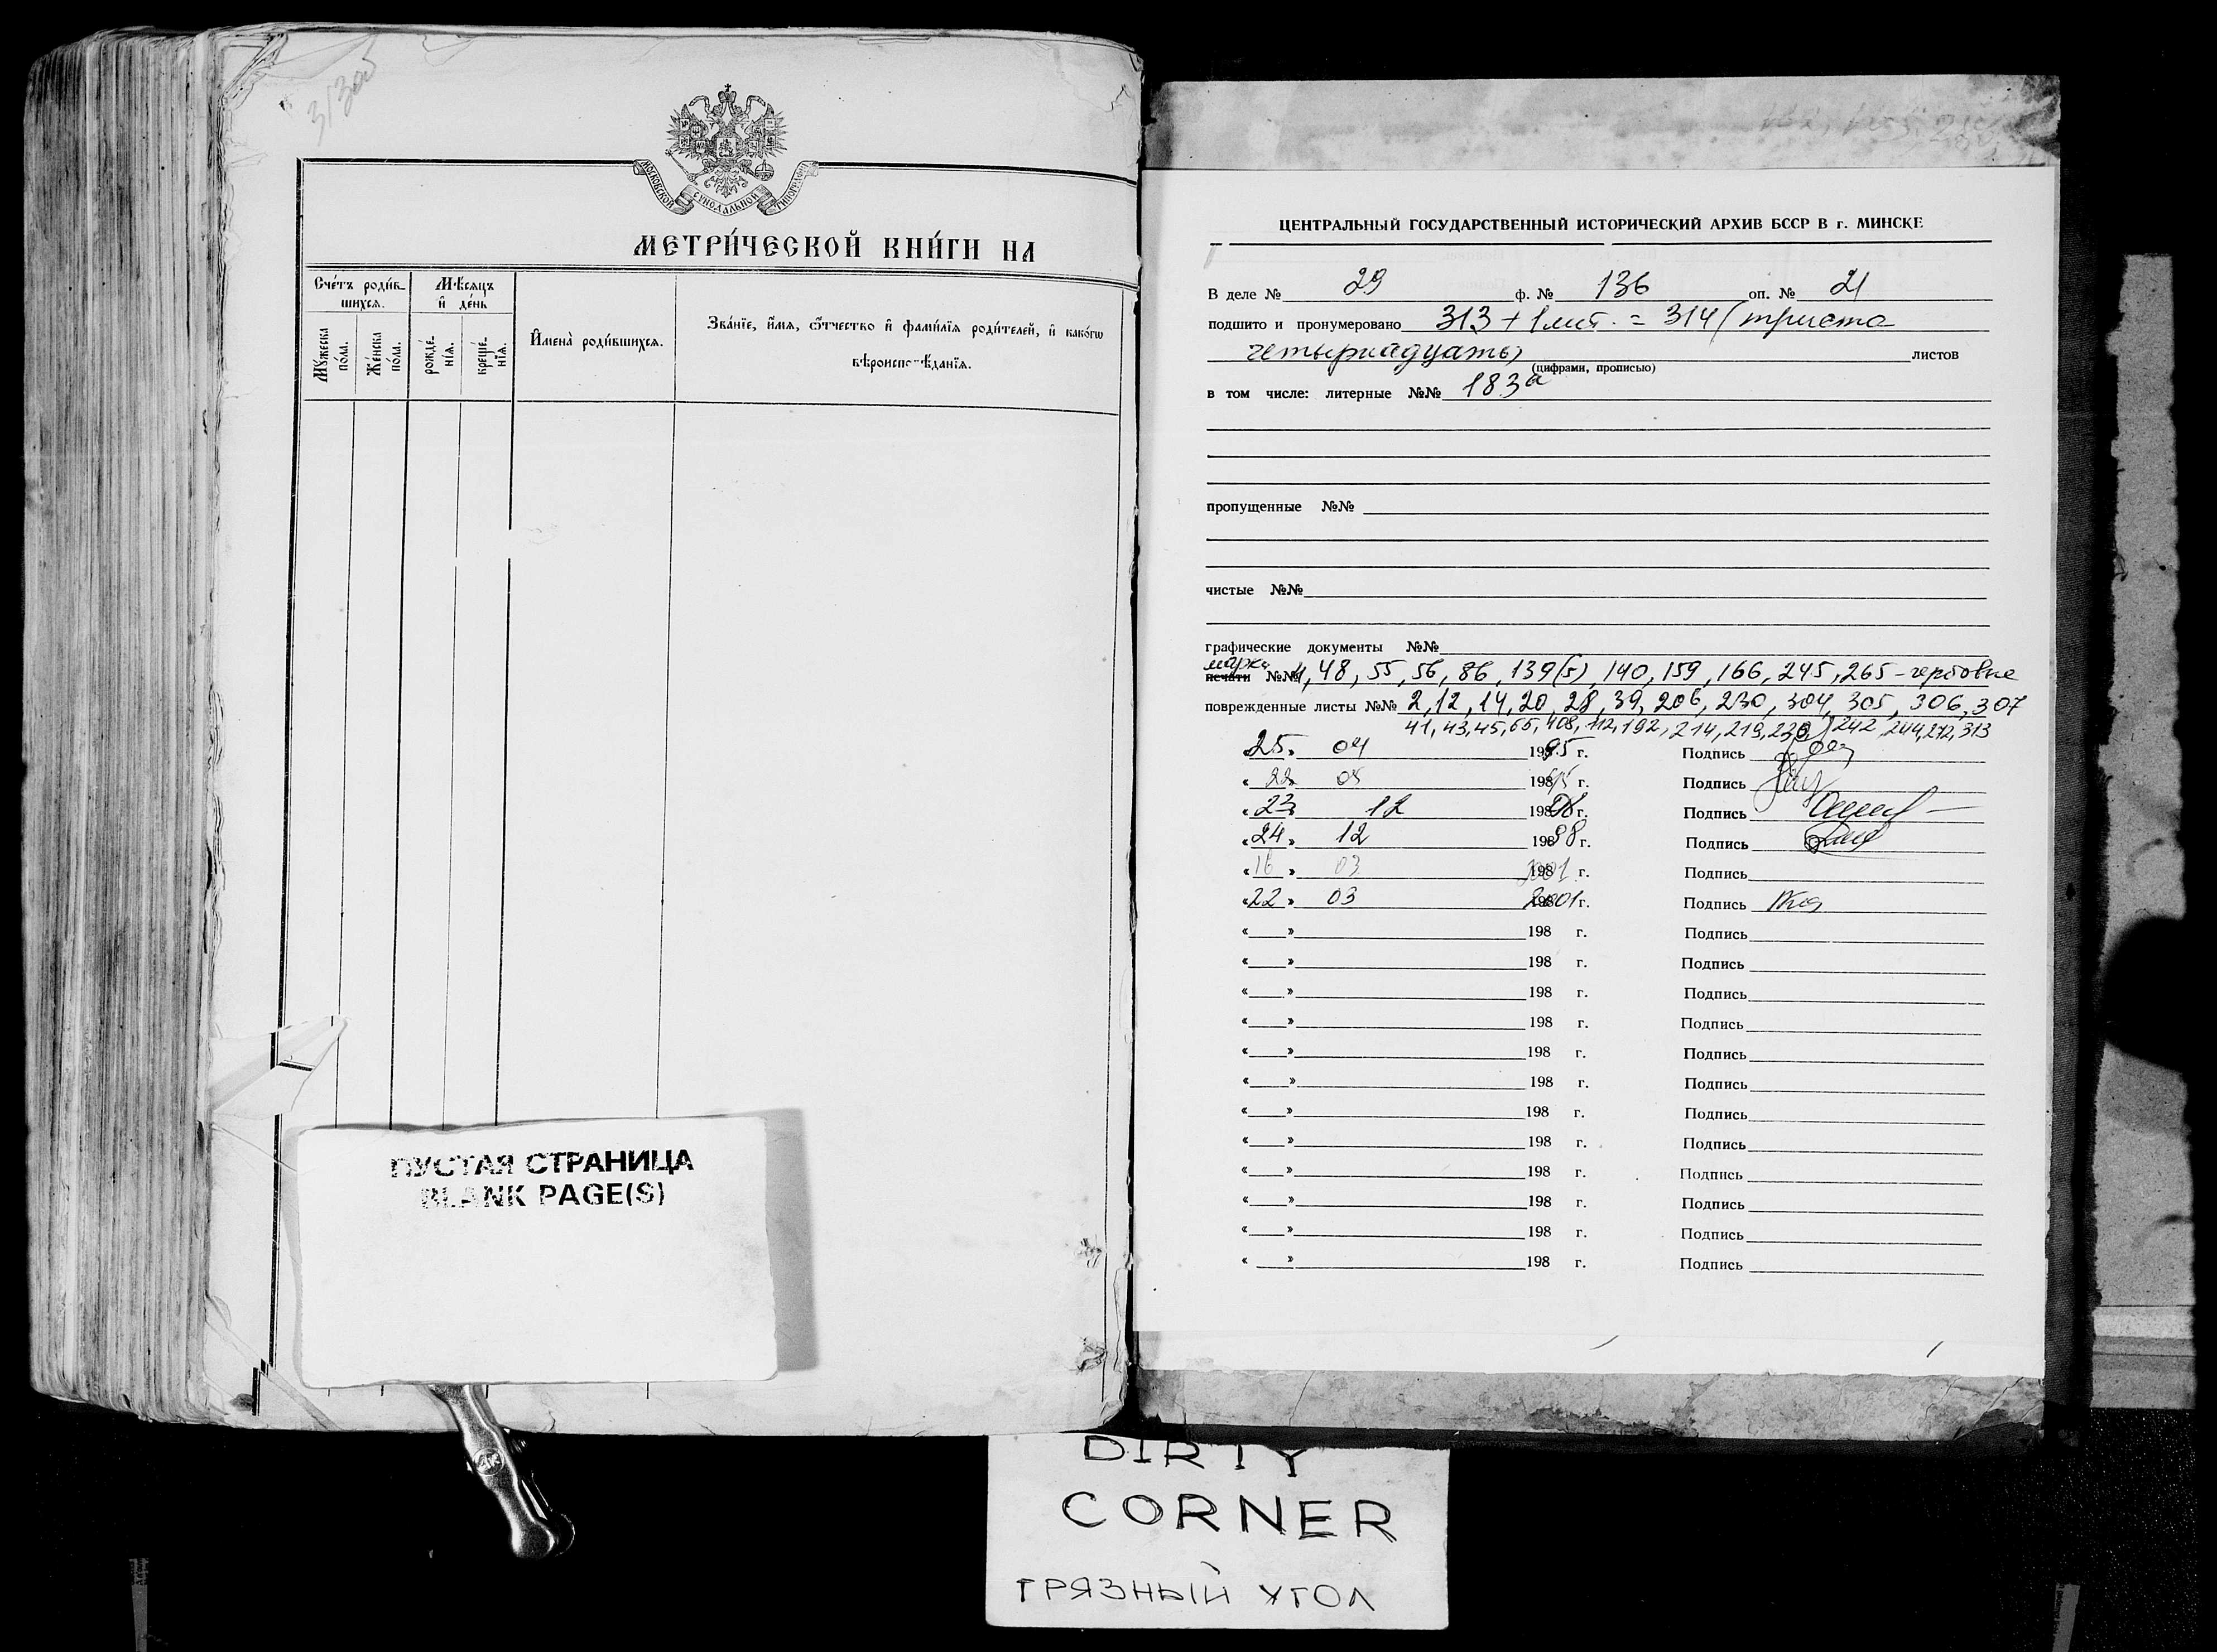 313об
МОСКОВСКОЙ СѴНОДАЛЬНОЙ ТИПОГРАФІИ
МЕТРИ́ЧЕСКОЙ КНИ́ГИ НА
Сче́тъ роди́в-
шихся.
Мѣ́сяцъ
и҆ де́нь
И҆мена̀ роди́вшихся.
Зва́нїе, и҆́мя, ѻ҆́тчество и҆ фами́лїя роди́телей, и҆ како́гѡ
вѣроиспо-ѣ́данїя.
Мꙋ́жеска
по́ла.
Же́нска
по́ла.
рожде́-
нїя.
креще́-
нїя.
ПУСТАЯ СТРАНИЦА
BLANK PAGE(S)
ЦЕНТРАЛЬНЫЙ ГОСУДАРСТВЕННЫЙ ИСТОРИЧЕСКИЙ АРХИВ БССР В г. МИНСКЕ
В деле № 29 ф. № 136 оп. № 21
подшито и пронумеровано 313 + 1 лит. = 314 (триста
четырнадцать) листов
(цифрами, прописью)
в том числе: литерные №№ 183а
пропущенные №№
чистые №№
графические документы №№
марки
печати №№ 1, 48, 55, 56, 86, 139(5), 140, 159, 166, 245, 265 - гербовые
поврежденные листы №№ 2, 12, 14, 20, 28, 39, 206, 230, 304, 305, 306, 307
41, 43, 45, 65, 108, 112, 192, 214, 219, 239, 242, 244, 272, 313
25» 04 1995 г. Подпись
«22 05 198 95 г. Подпись
«23» 12 198 98 г. Подпись
«24» 12 198 98 г. Подпись
«16» 03 198 2001 г. Подпись
«22» 03 198 2001 г. Подпись
« » 198 г. Подпись
« » 198 г. Подпись
« » 198 г. Подпись
« » 198 г. Подпись
« » 198 г. Подпись
« » 198 г. Подпись
« » 198 г. Подпись
« » 198 г. Подпись
« » 198 г. Подпись
« » 198 г. Подпись
« » 198 г. Подпись
« » 198 г. Подпись
DIRTY
CORNER
ГРЯЗНЫЙ УГОЛ